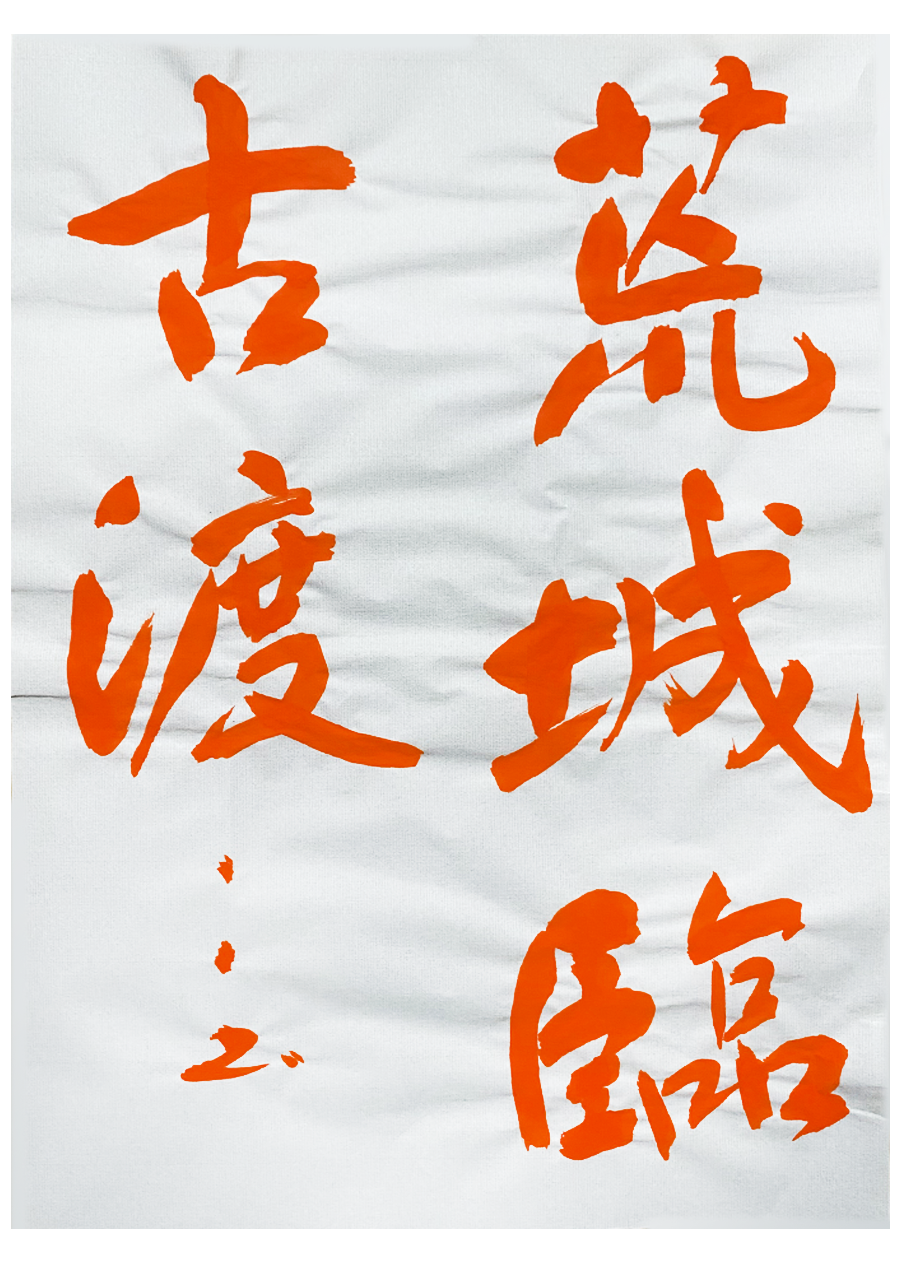 荒城臨
古渡